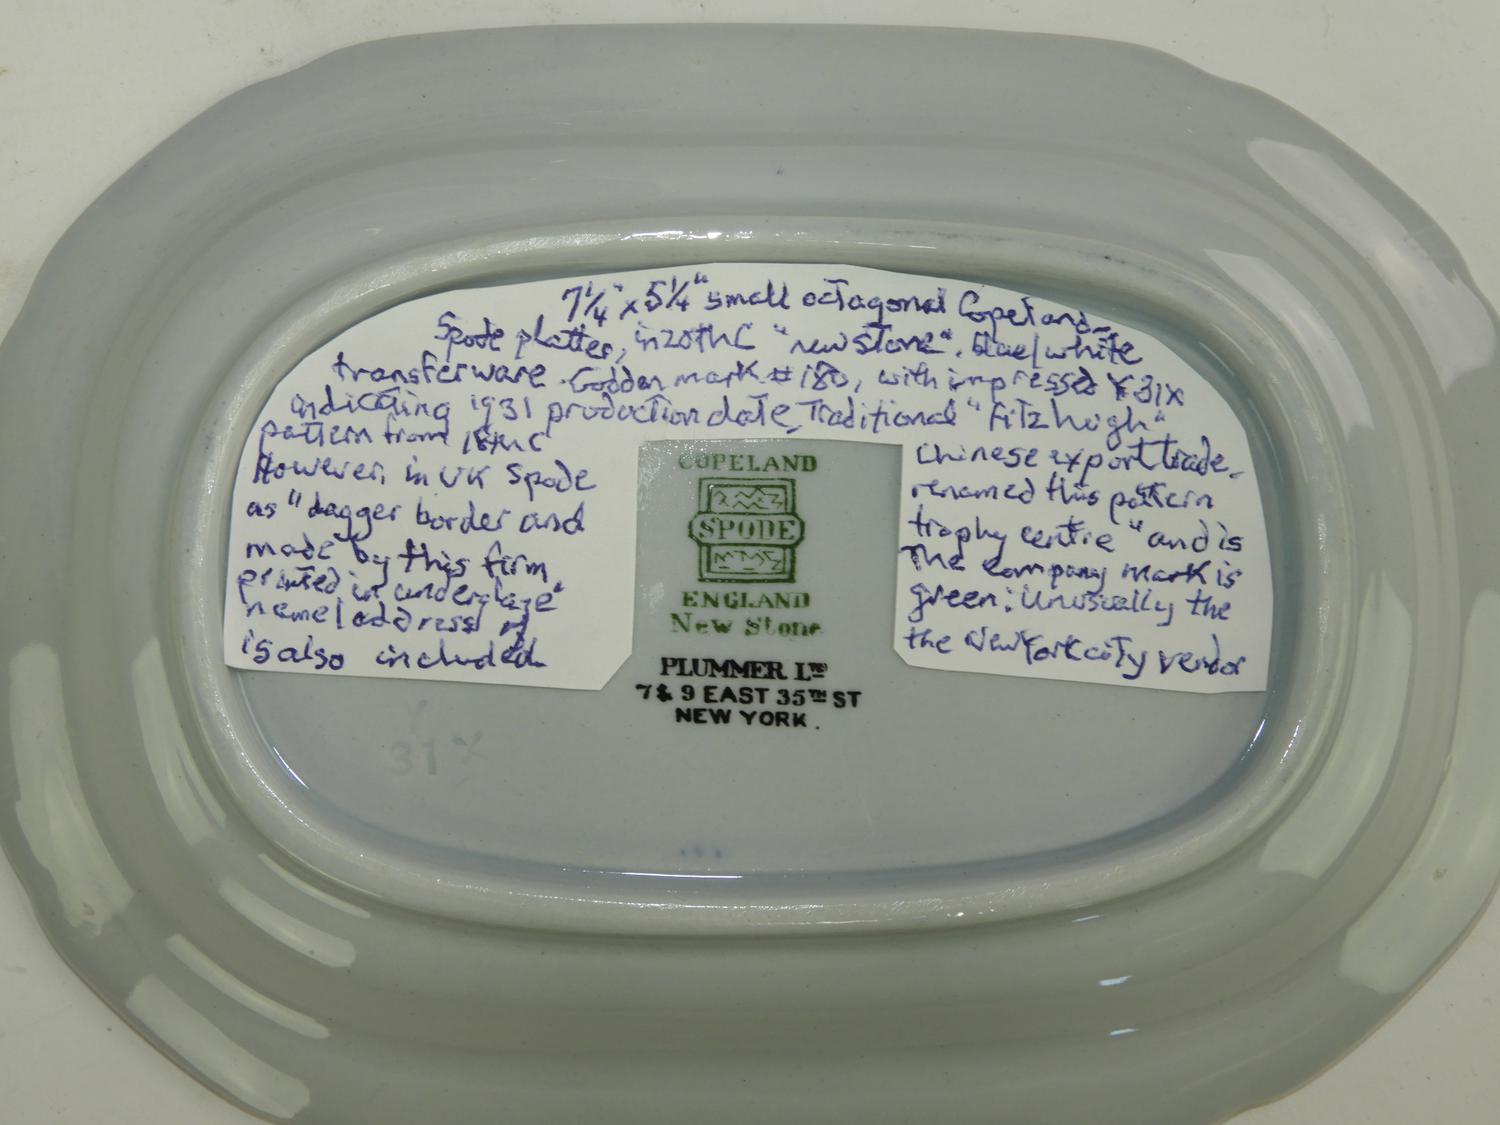 7¼" x 5¼" small octagonal Copeland-
Spode platter, in 20thC "new stone". blue/white
transferware. Godden mark #180, with impressed Y.31X
indicating 1931 production date. Traditional "Fitzhugh"
pattern from 18thC Chinese export trade.
However, in UK Spode renamed this pattern
as "dagger border and trophy centre" and is
made by this firm The company mark is
printed in underglaze green: Unusually the
name/address of the New York city vendor
is also included.
COPELAND
SPODE
ENGLAND
New Stone
PLUMMER LTD
7 & 9 EAST 35TH ST
NEW YORK.
Y
31 X